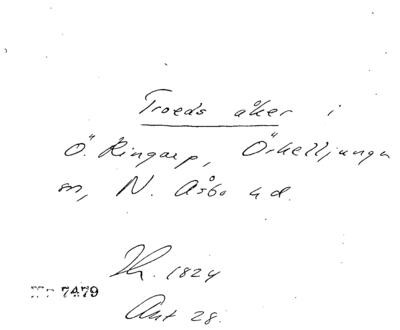 Troeds åker i
Ö. Ringarp, Örkelljunga
sn, N. Åsbo hd.
Th. 1824
7479
Ant 28.